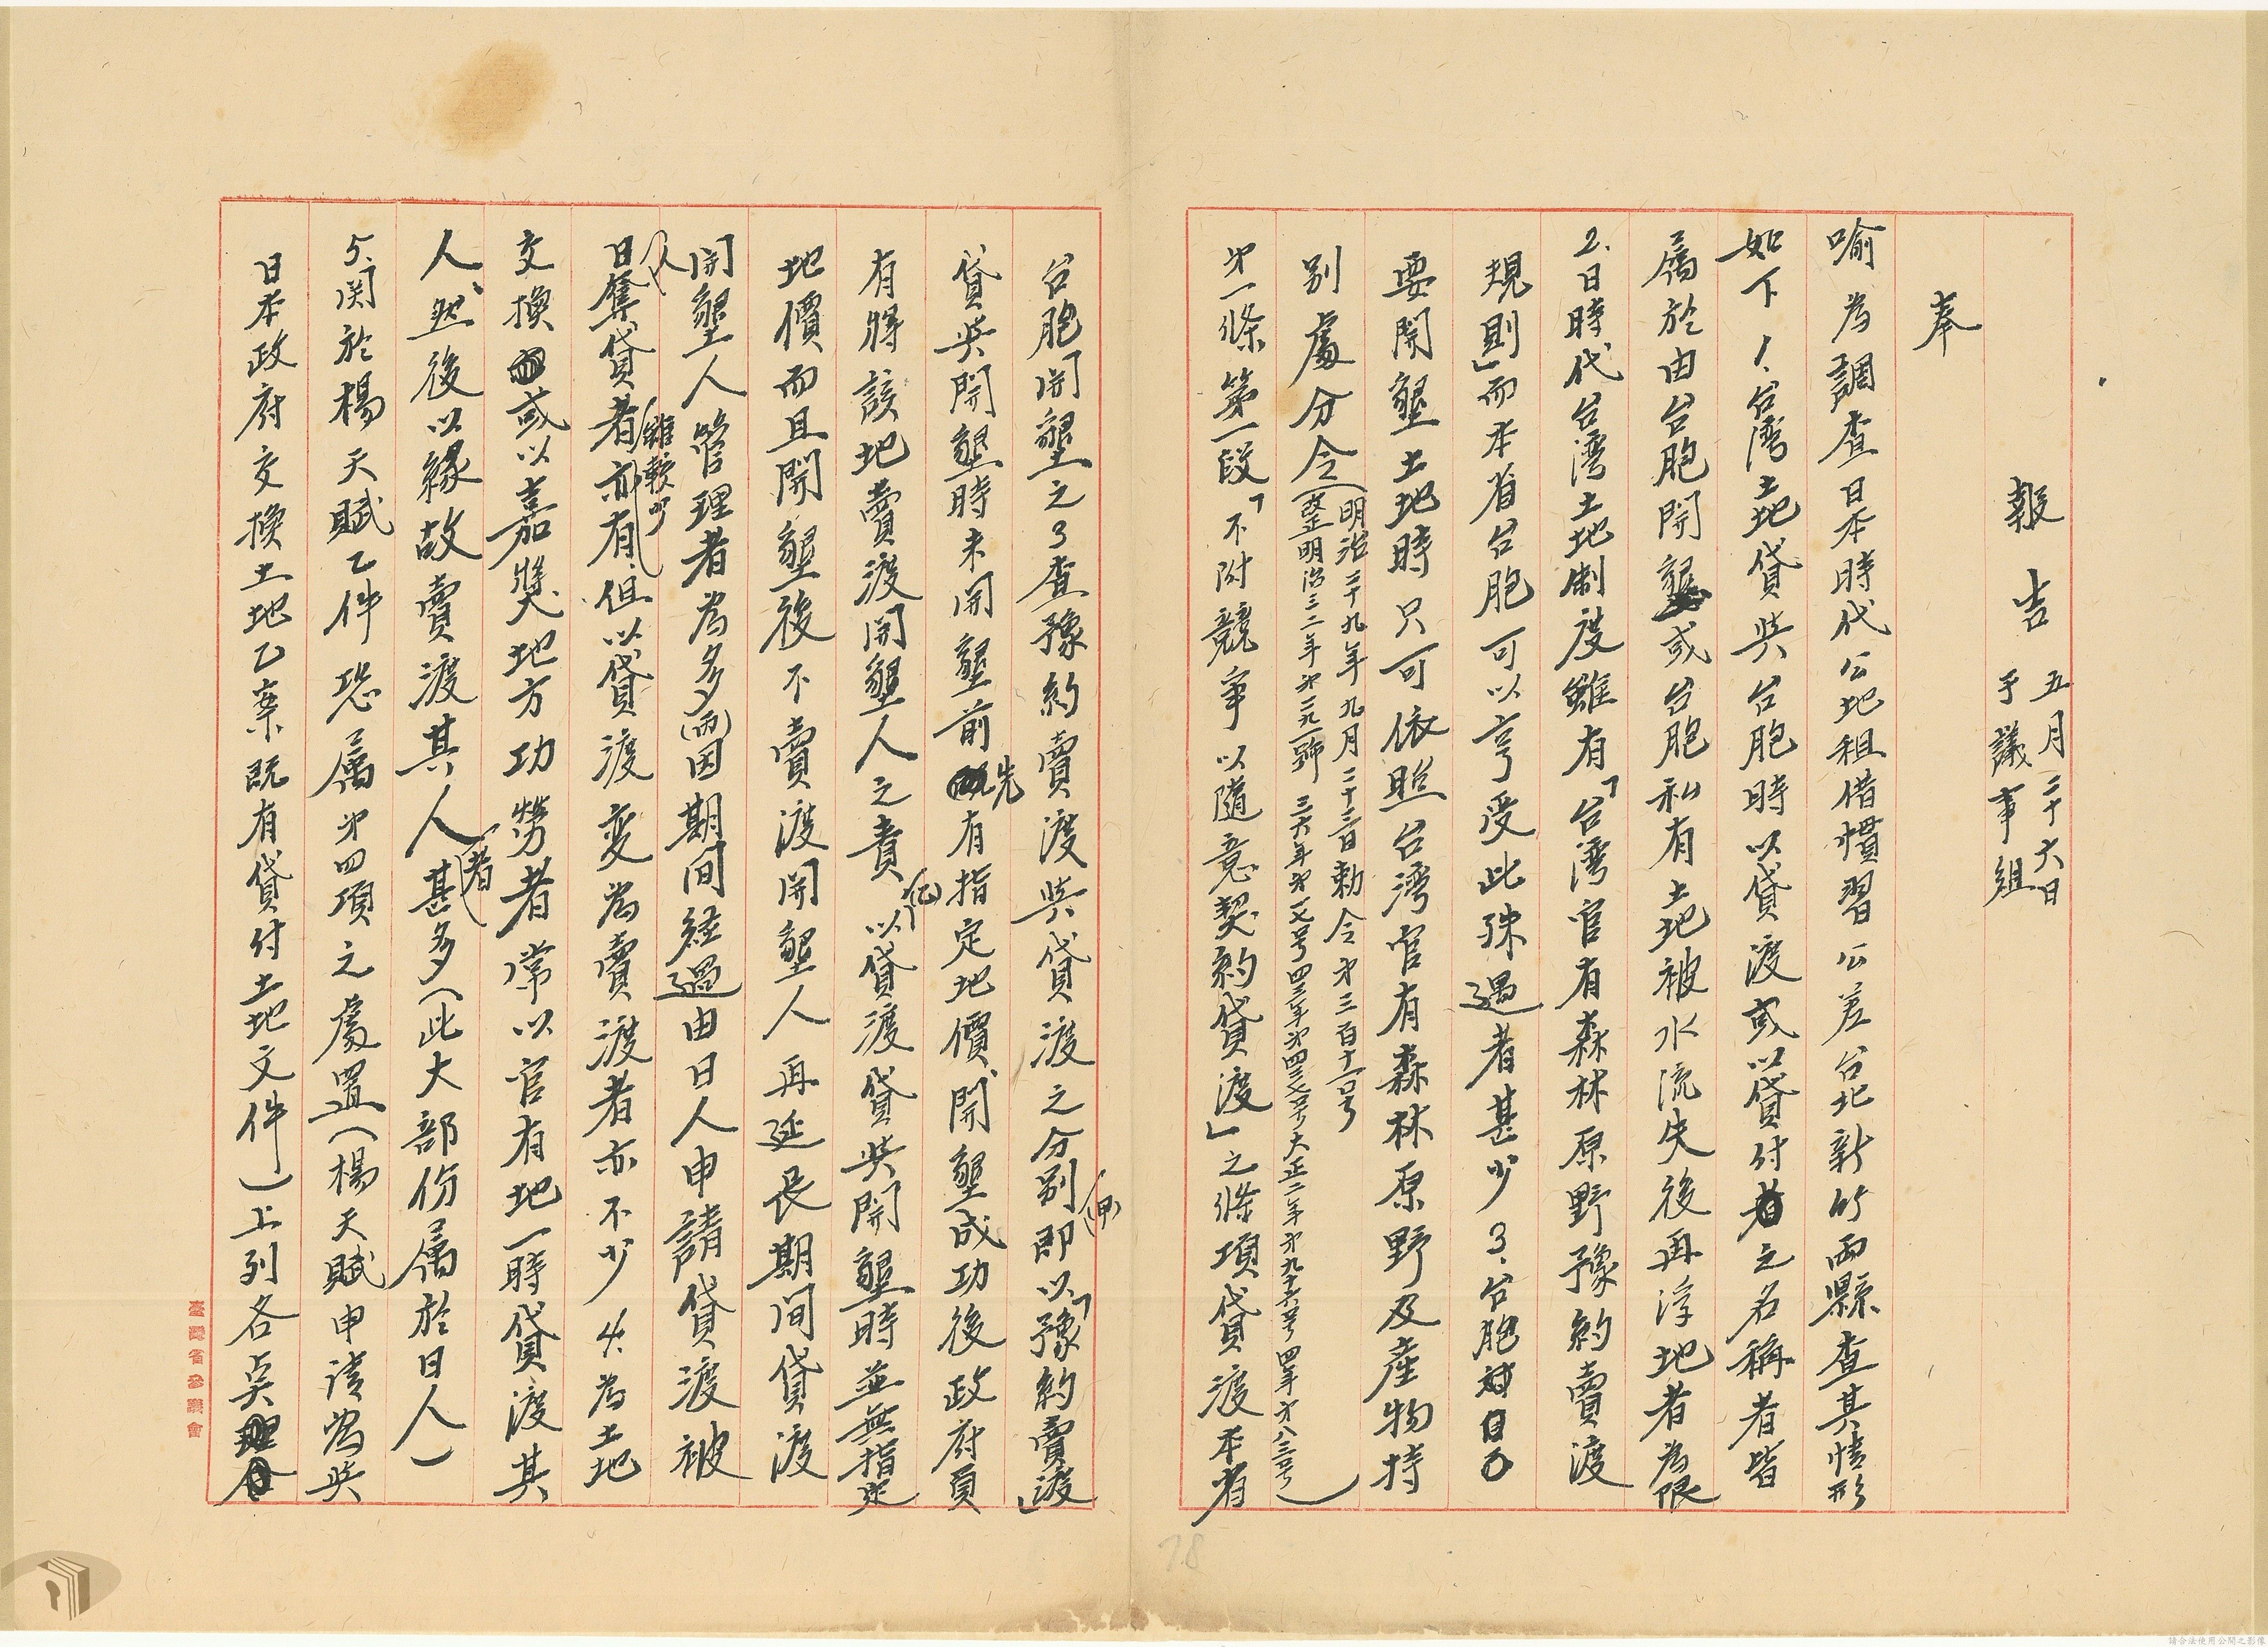 報告 五月二十六日
于議事組
奉
喻 為調查日本時代公地租借慣習公差台北新竹兩縣查其情形
如下 1.台湾土地貸與台胞時以貸渡或以貸付之名稱者皆
屬於由台胞開墾或台胞私有土地被水流失後再浮地者為限
2.日時代台湾土地制度雖有「台湾官有森林原野豫約賣渡
規則」而本省台胞可以亨受此殊遇者甚少 3.台胞
要開墾土地時只可依照台湾官有森林原野及產物特
別處分令(明治二十九年九月二十三日勅令第三百十二号
改正明治三二年第二九一號 三六年第一七号 四三年第四三七号 大正二年第九十六号 四年第八三号)
第一條第一段「不附競爭以隨意契約貸渡」之條項貸渡本省
台胞開墾之 3查豫約賣渡與貸渡之分別即(甲)以「豫約賣渡」
貸與開墾時未開墾前先有指定地價、開墾成功後政府負
有將該地賣渡開墾人之責 (乙)以貸渡貸與開墾時並無指定
地價而且開墾後不賣渡開墾人再延長期间貸渡
開墾人管理者為多(而)因期间経過由日人申請貸渡被
日人奪貸者雖較少亦有但以貸渡变為賣渡者亦不少 4.為土地
交換或以嘉奬地方功勞者常以官有地一時貸渡其
人、然後以緣故賣渡其人者甚多(此大部份屬於日人)
5.関於楊天賦乙件恐屬第四項之處置(楊天賦申请為與
日本政府交換土地乙案既有貸付土地文件)上列各点理合
臺灣省參議會
78
請合法使用公開之影像